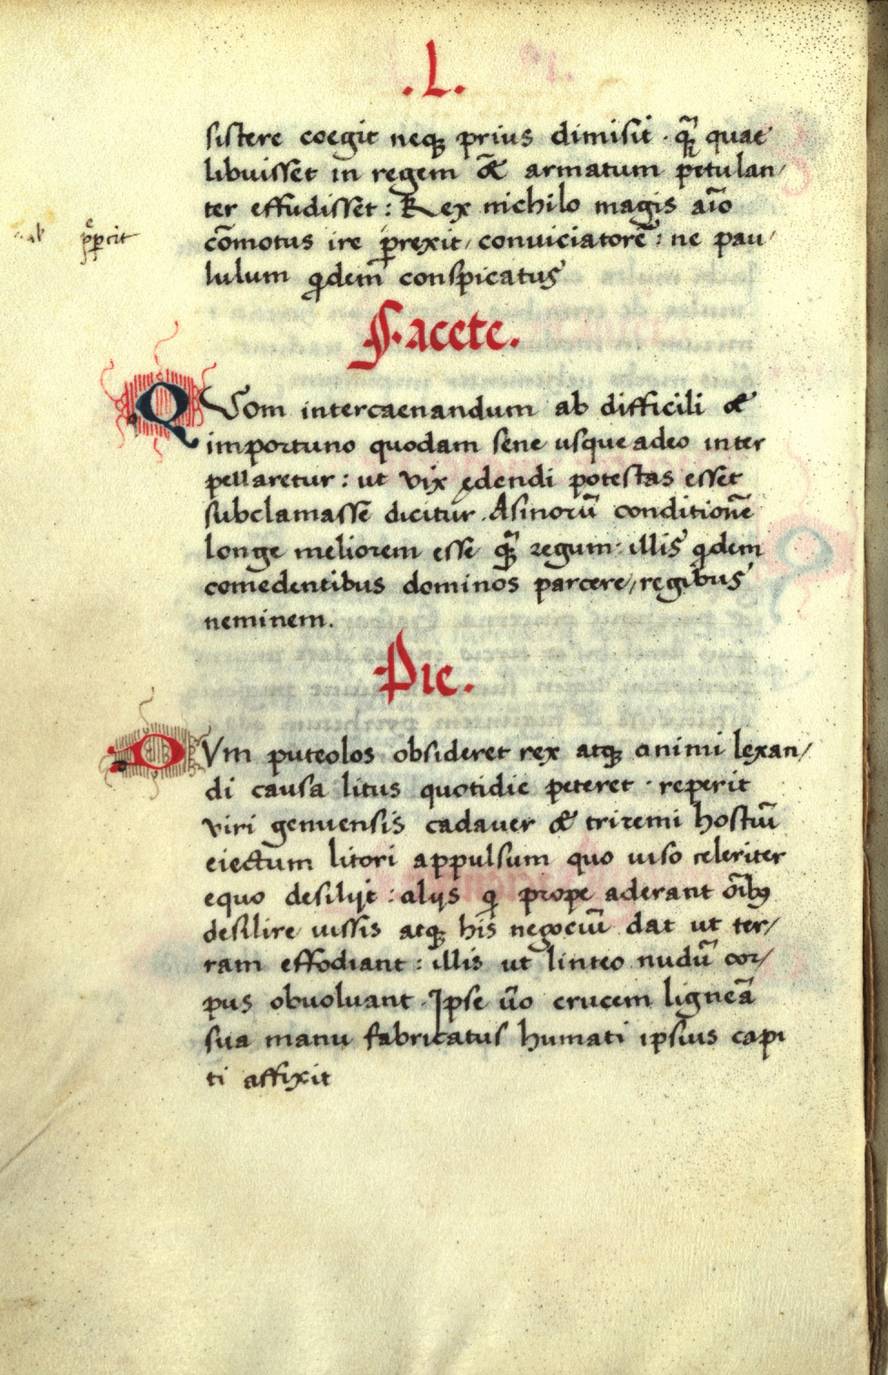 .L.
sistere coegit neqꝫ prius dimisit · qᷓꝫ quae
libuisset in regem & armatum petulan/
ter effudisset : Rex nichilo magis aīo
cōmotus ire ꝑrexit / conuiciatorē : ne pau/
lulum qdem conspicatus
Facete.
QVom intercaenandum ab difficili &
importuno quodam sene usque adeo inter
pellaretur : ut vix ędendi potestas esset
subclamasse dicitur . Asinorū conditionē
longe meliorem esse qᷓꝫ regum : illis qdem
comedentibus dominos parcere / regibus
neminem.
Pie.
DVm puteolos obsideret rex atqꝫ animi lexan/
di causa litus quotidie peteret · reperit
viri genuensis cadauer & triremi hostiū
eiectum litori appulsum quo uiso celeriter
equo desilijt : alijs q prope aderant oībꝰ
desilire iussis atqꝫ his negociū dat ut ter/
ram effodiant : illis ut linteo nudū cor/
pus obuoluant . Ipse ūo crucem ligneā
sua manu fabricatus humati ipsius capi
ti affixit